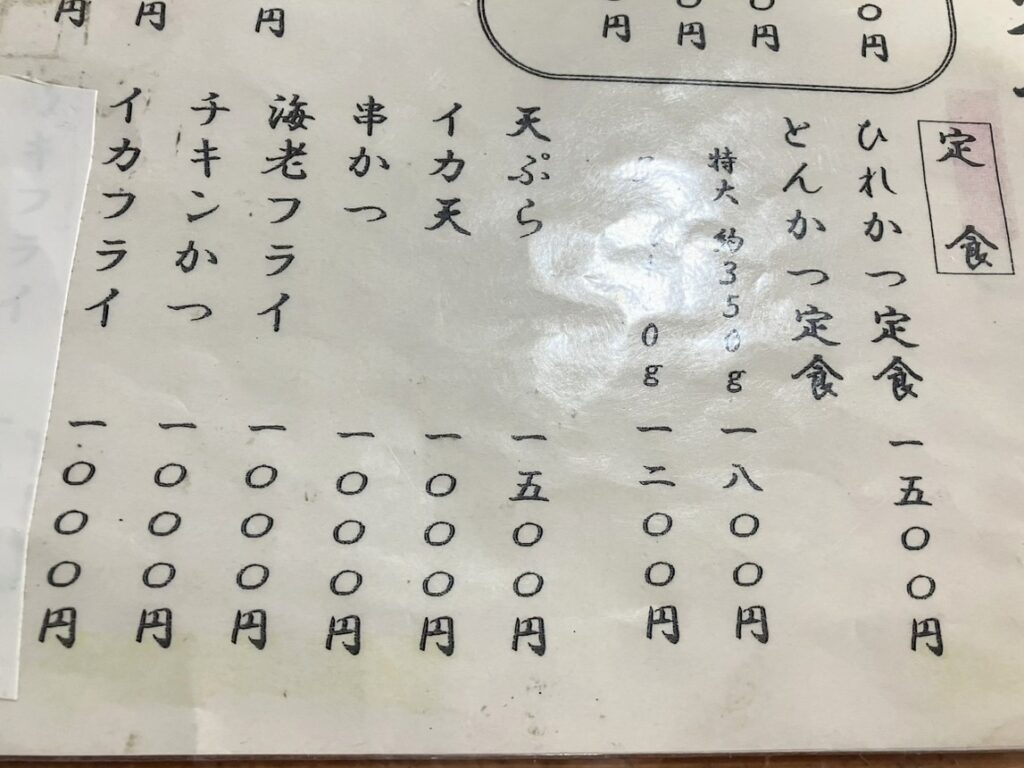 円
〇円
円
円
〇円
円
円
円
定食
ひれかつ定食 一五〇〇円
とんかつ定食
特大 約350g 一八〇〇円
0g 一二〇〇円
天ぷら 一五〇〇円
イカ天 一〇〇〇円
串かつ 一〇〇〇円
海老フライ 一〇〇〇円
チキンかつ 一〇〇〇円
イカフライ 一〇〇〇円